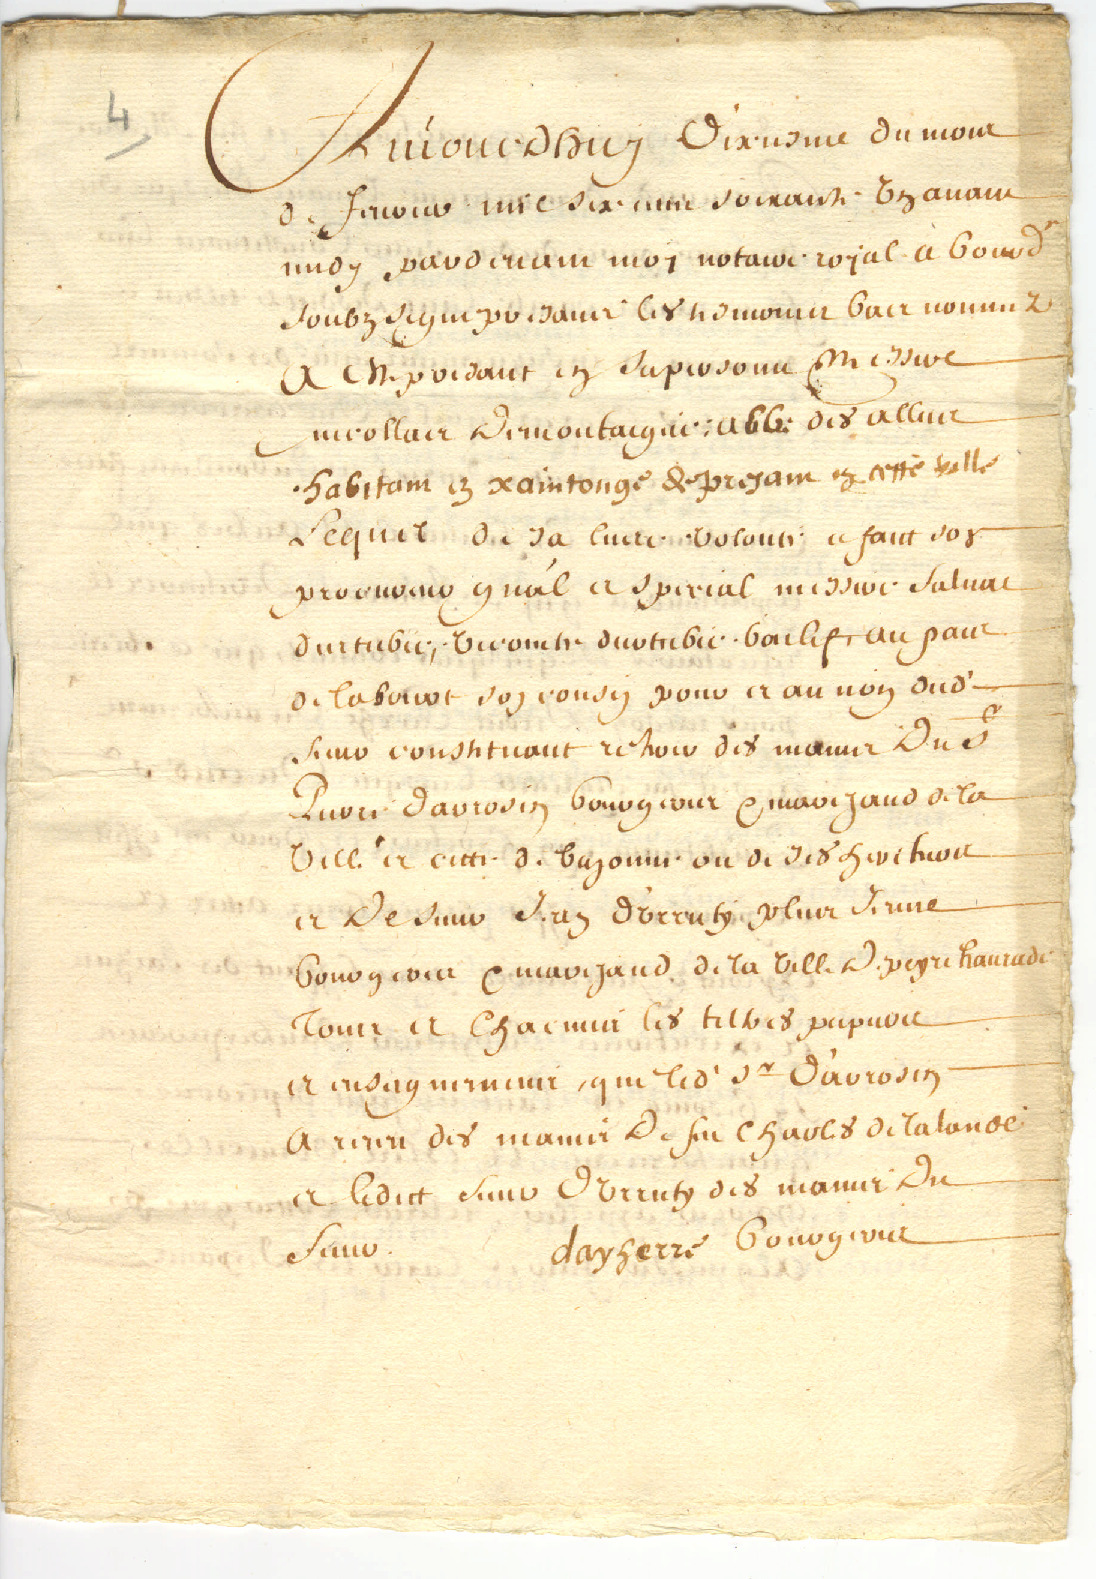 4
Aujourdhuy dixiesme du mois
de feuvrier mil six cens soixante ung avant
midy par devant moy notaire royal à Bourdx
soubz signe presans les tesmoins bas nommez
A este presant en sa personne Messire
Nicollas de montaigne, abbé des alleus
habitant en xaintonge de presant en cette ville
Lequel de sa libre volonté a fait son
procureur gnāl et special messire Salvat
durtubie, vicomte durtubie bailif au pais
de labourt son cousin pour et au nom dud
sieur constituant retirer des mains du Sr
Pierre davrosin bourgeois & marchand de la
ville et citté de bayonne ou de ses heritiers
et de sieur Jean d'Verruty plus Jeune
bourgeois & marchand de la ville de peyrehaurade
Tous et chacuns les titres papiers
et enseignemens, que led sr d'avrosin
A receu des mains de feu Charles de lalande
et ledict sieur d'Verruty des mains du
sieur dayherre bourgeois